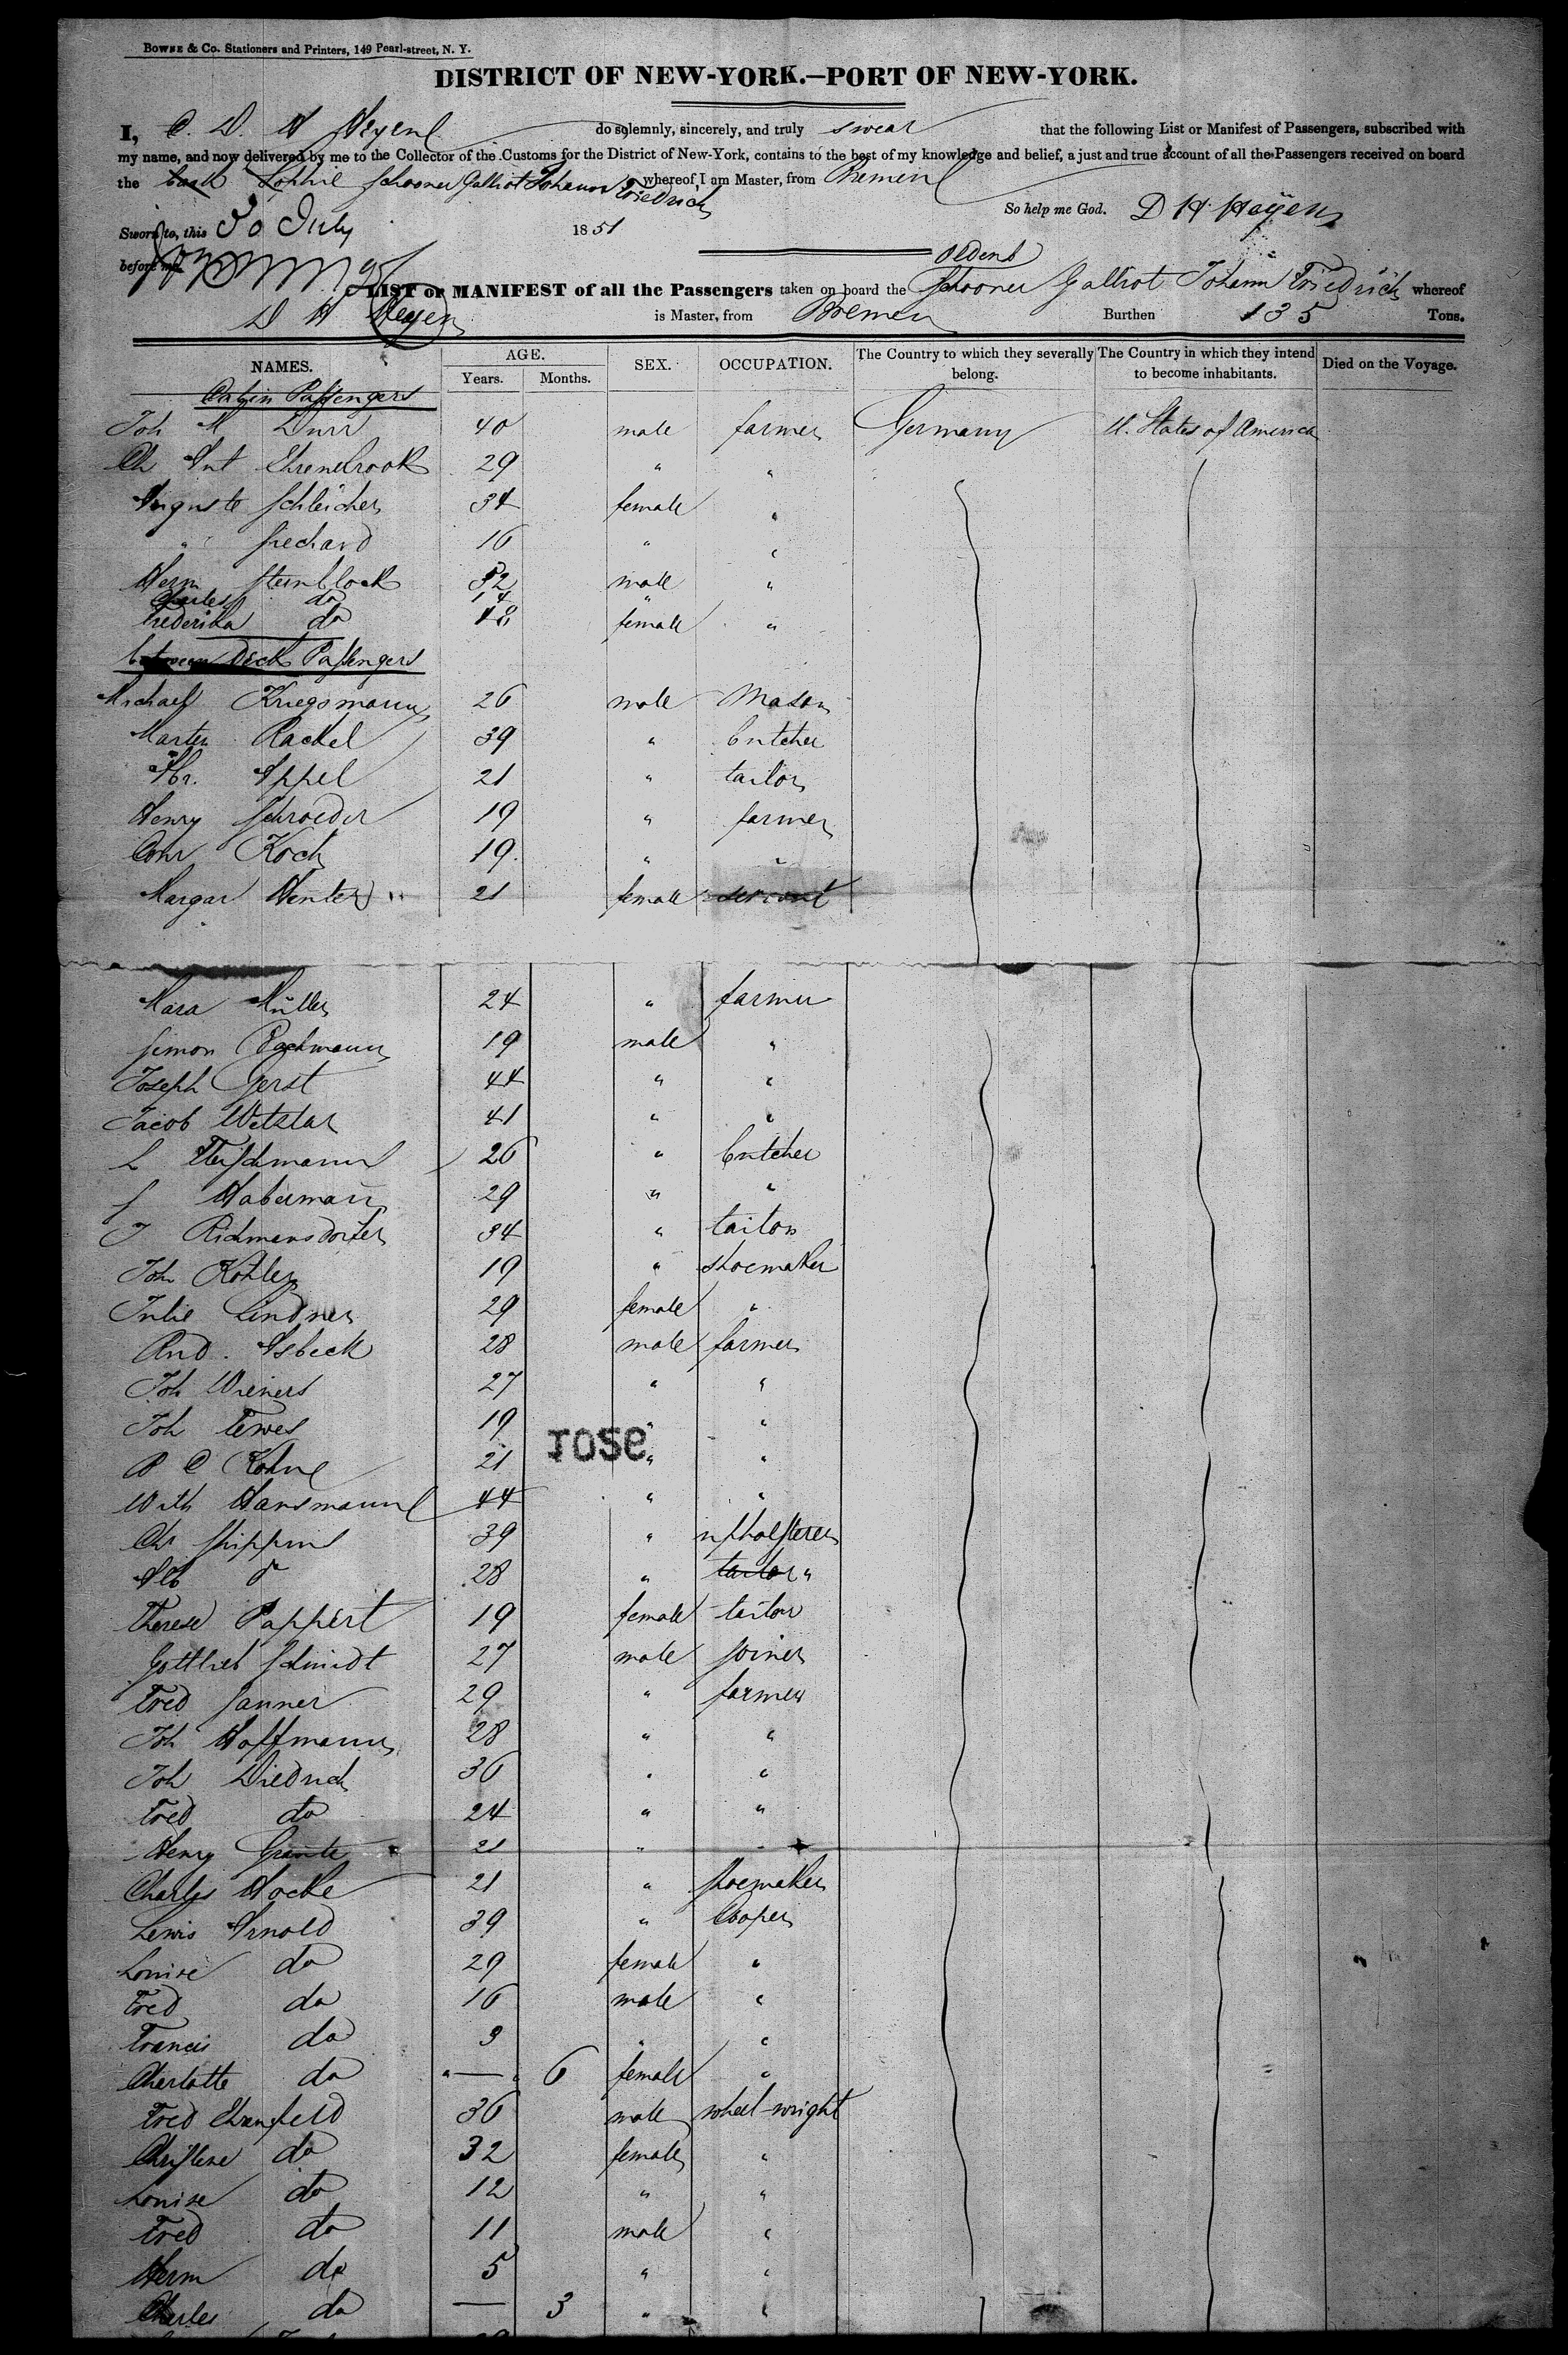 BOWNE & Co. Stationers and Printers, 149 Pearl-street, N. Y.
DISTRICT OF NEW-YORK.—PORT OF NEW-YORK.
I, D. H do solemnly, sincerely, and truly swear that the following List or Manifest of Passengers, subscribed with
my name, and now delivered by me to the Collector of the Customs for the District of New-York, contains to the best of my knowledge and belief, a just and true account of all the Passengers received on board
the Sophie Schooner Galliot Johann Friedrich whereof, I am Master, from Bremen
So help me God. D H Heyen
Sworn to, this 30 July 1851
before me
Oldenb
LIST or MANIFEST of all the Passengers taken on board the Schooner Galliot Johann Friedrich whereof
D H Heyen is Master, from Bremen Burthen 135 Tons.
NAMES. AGE. Years. Months. SEX. OCCUPATION. The Country to which they severally belong. The Country in which they intend to become inhabitants. Died on the Voyage.
Cabin Passengers
Joh M Durr 40 male farmer Germany U. States of America
Ch Ant Ehrenbrook 29 " "
Auguste Schleicher 34 female "
" 16 " "
Herm Steinblock 52 male "
Charles do 14 "
Frederika do 48 female "
between Deck Passengers
Michael Kriegsmann 26 male Mason
Martin Rackel 39 " butcher
Appel 21 " tailor
Henry Schroeder 19 " farmer
Conr Koch 19 " "
Margar Winter 21 female servant
Mara Müller 24 " farmer
Simon Bachmann 19 male "
Joseph Gerst 44 " "
Jacob Wetzlar 41 " "
L Fleischmann 26 " butcher
S Habermann 29 " "
J Ridmansdorfer 34 " tailor
Joh Kohler 19 " shoemaker
Julie Lindner 29 female "
And. Asbeck 28 male farmer
Joh Wieners 27 " "
Joh Tewes 19 " "
rose
21 " "
Wilh Hansmann 44 " "
Chr 39 " upholsterer
Alb do 28 " tailor "
Therese Pappert 19 female tailor
Gottlieb Schmidt 27 male joiner
Fred Sanner 29 " farmer
Joh Hoffmann 28 " "
Joh Diedrich 36 " "
Fred do 24 " "
Henry Grante 21 " "
Charles Hocke 21 " shoemaker
Lewis Arnold 39 " Cooper
Louise do 29 female "
Fred do 16 male "
Francis do 9 " "
Charlotte do — 6 female "
Fred Ehrenfeld 36 male wheel-wright
Christine do 32 female "
Louise do 12 " "
Fred do 11 male "
Herm do 5 " "
Charles do — 3 " "